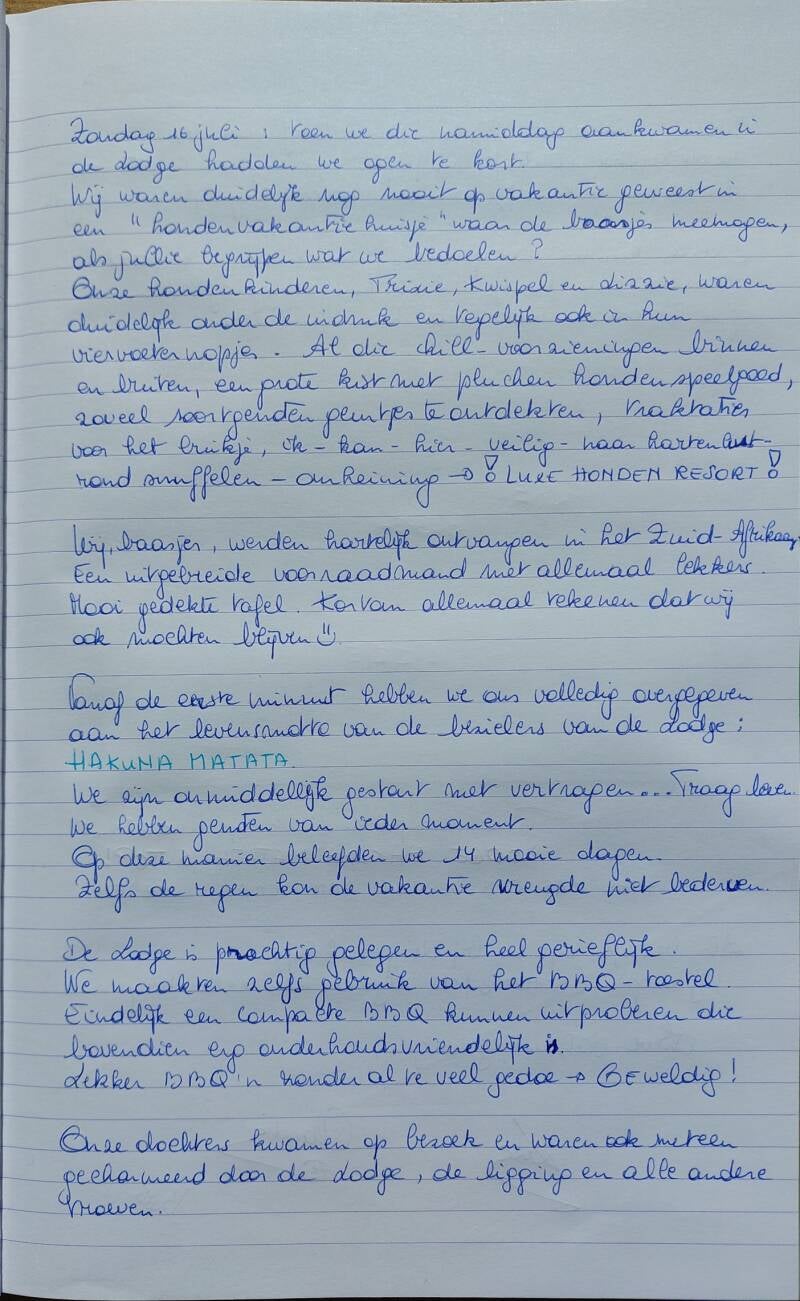 Zondag 16 juli : toen we die namiddag aankwamen in
de Lodge hadden we ogen te kort.
Wij waren duidelijk nog nooit op vakantie geweest in
een "hondenvakantie huisje" waar de baasjes meemogen,
als jullie begrijpen wat we bedoelen ?
Onze hondenkinderen, Trixie, Kwispel en dizzie, waren
duidelijk onder de indruk en tegelijk ook in hun
viervoeternopjes. Al die chill-voorzieningen binnen
en buiten, een grote kist met pluchen hondenspeelgoed,
zoveel geurtjes te ontdekken, traktaties
voor het buikje, ik-kan-hier-veilig-naar hartenlust-
rond snuffelen - omheining → ! LUXE HONDEN RESORT !
Wij, baasjes, werden hartelijk ontvangen in het Zuid-Afrikaans.
Een uitgebreide voorraadmand met allemaal lekkers.
Mooi gedekte tafel. Kortom allemaal tekenen dat wij
ook mochten blijven ☺
Vanaf de eerste minuut hebben we ons volledig overgegeven
aan het levensmotto van de bezielers van de Lodge :
HAKUNA MATATA.
We zijn onmiddellijk gestart met vertragen... Traag leven.
We hebben genoten van ieder moment.
Op deze manier beleefden we 14 mooie dagen.
Zelfs de regen kon de vakantie vreugde niet bederven.
De Lodge is prachtig gelegen en heel gerieflijk.
We maakten zelfs gebruik van het BBQ-toestel.
Eindelijk een compacte BBQ kunnen uitproberen die
bovendien erg onderhoudsvriendelijk is.
Lekker BBQ'n zonder al te veel gedoe → Geweldig !
Onze dochters kwamen op bezoek en waren ook meteen
gecharmeerd door de Lodge, de ligging en alle andere
troeven.